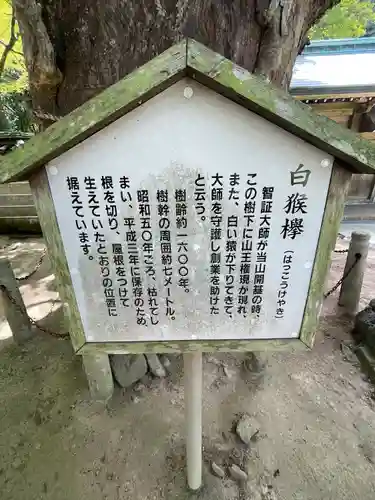 白猴欅(はっこうけやき)
智証大師が当山開基の時、
この樹下に山王権現が現れ
また、白い猿が下りてきて、
大師を守護し創業を助けた
と云う。
樹齢約一六〇〇年。
樹幹の周囲約七メートル。
昭和五〇年ころ、枯れてし
まい、平成三年に保存のため
根を切り、屋根をつけて
生えていたとおりの位置に
据えています。